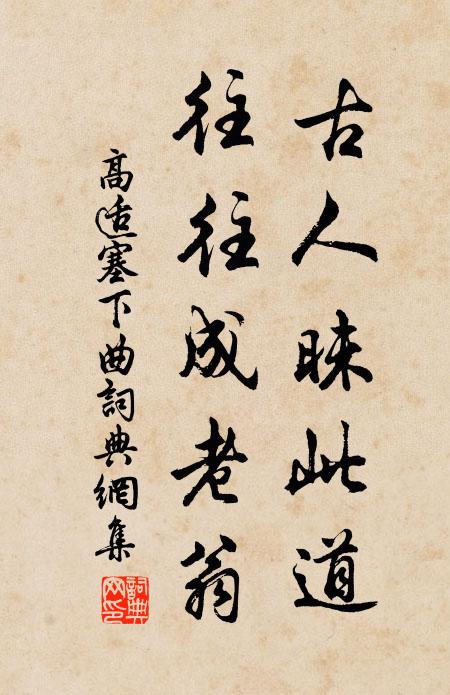 古人昧此道
往往成老翁
高适塞下曲詞典網集